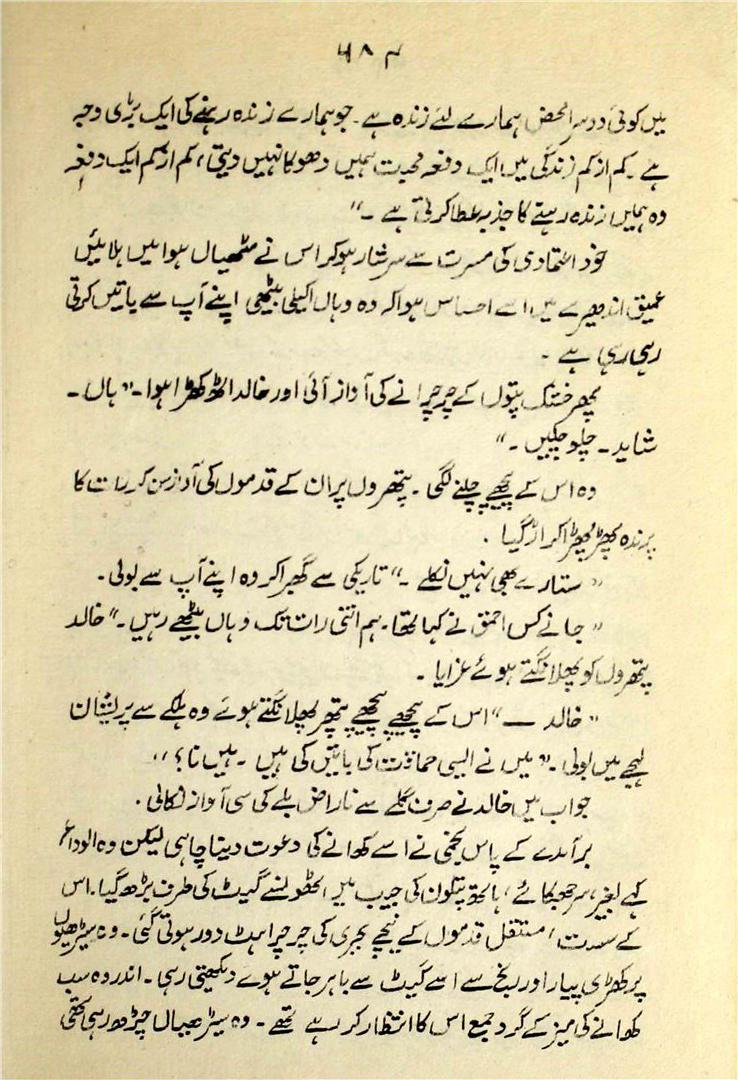 ۶۸۴
میں کوئی دوسرا محض ہمارے لئے زندہ ہے۔ جو ہمارے زندہ رہنے کی ایک بڑی وجہ
ہے۔ کم از کم زندگی میں ایک دفعہ محبت ہمیں دھوکا نہیں دیتی، کم از کم ایک دفعہ
وہ ہمیں زندہ رہنے کا جذبہ عطا کرتی ہے۔"
خود اعتمادی کی مسرت سے سرشار ہو کر اس نے مٹھیاں ہوا میں ہلائیں
عمیق اندھیرے میں اسے احساس ہوا کہ وہ وہاں اکیلی بیٹھی اپنے آپ سے باتیں کرتی
رہی رہی ہے۔
پھر خشک پتوں کے چرچرانے کی آواز آئی اور خالد اٹھ کھڑا ہوا۔ "ہاں۔
شاید۔ چلو چلیں۔"
وہ اس کے پیچھے چلنے لگی۔ پتھروں پر ان کے قدموں کی آواز سن کر رات کا
پرندہ پھڑپھڑا کر اڑ گیا۔
"ستارے بھی نہیں نکلے۔" تاریکی سے گھبرا کر وہ اپنے آپ سے بولی۔
"جانے کس احمق نے کہا تھا۔ ہم اتنی رات تک وہاں بیٹھے رہیں۔" خالد
پتھروں کو پھلانگتے ہوئے غرایا۔
"خالد —" اس کے پیچھے پیچھے پتھر پھلانگتے ہوئے وہ ہلکے سے پریشان
لہجے میں بولی۔ "میں نے ایسی حماقت کی باتیں کی ہیں۔ ہیں نا؟"
جواب میں خالد نے صرف گلے سے ناراض بلے کی سی آواز نکالی۔
برآمدے کے پاس نجمی نے اسے کھانے کی دعوت دینا چاہی لیکن وہ الوداع
کہے بغیر، سر جھکائے، ہاتھ پتلون کی جیب میں ٹھونسے گیٹ کی طرف بڑھ گیا۔ اس
کے سست، مستقل قدموں کے نیچے بجری کی چرچراہٹ دور ہوتی گئی۔ وہ سیڑھیوں
پر کھڑی پیار اور رنج سے اسے گیٹ سے باہر جاتے ہوے دیکھتی رہی۔ اندر وہ سب
کھانے کی میز کے گرد جمع اس کا انتظار کر رہے تھے۔ وہ سیڑھیاں چڑھ رہی تھی